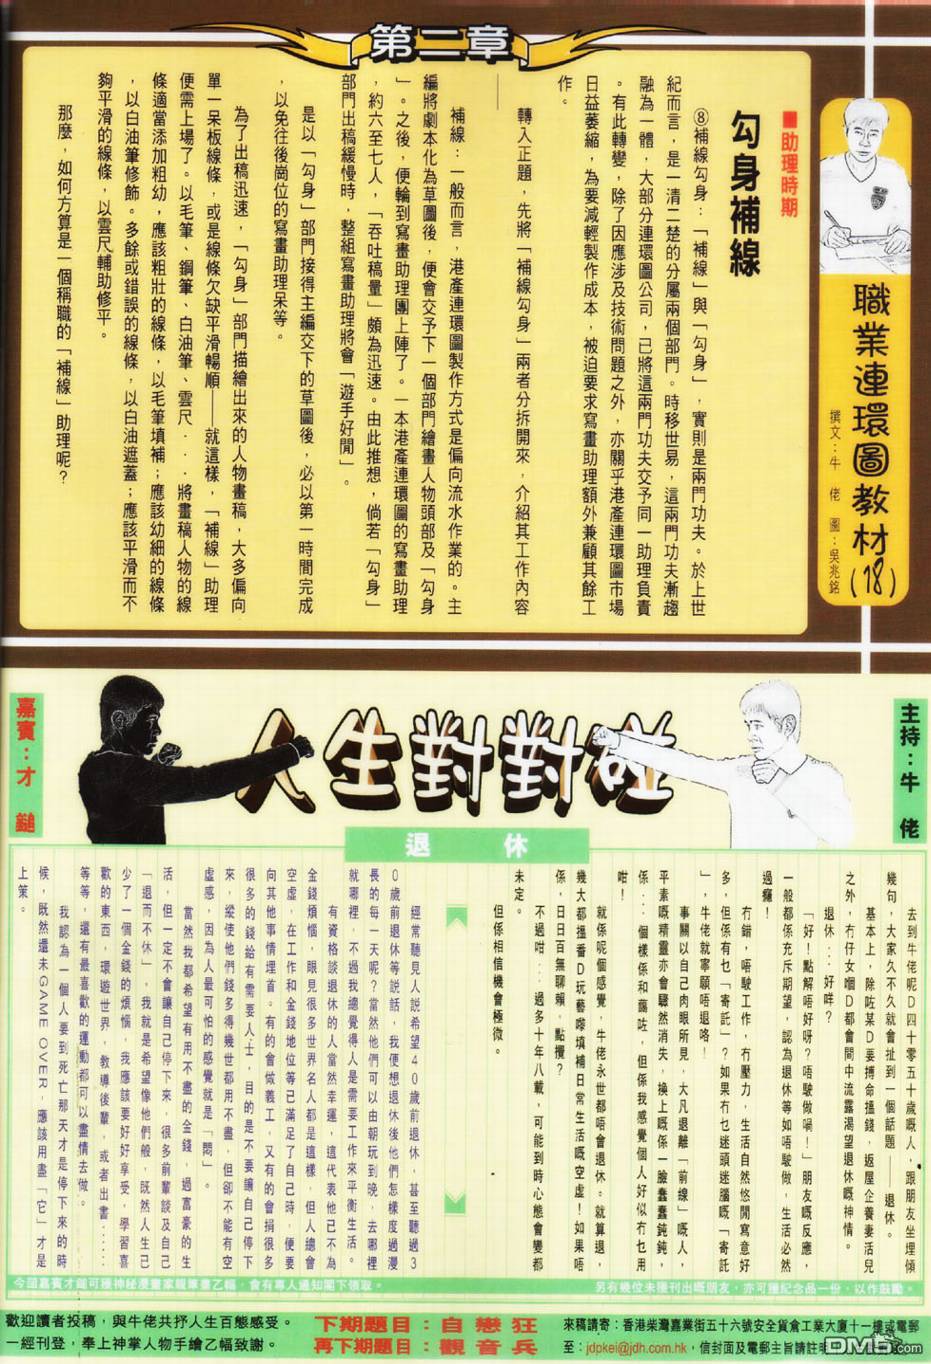 第二章
職業連環圖教材(18)
撰文：牛佬　圖：吳兆銘
■助理時期
勾身補線
⑧補線勾身：「補線」與「勾身」，實則是兩門功夫。於上世
紀而言，是一清二楚的分屬兩個部門。時移世易，這兩門功夫漸趨
融為一體，大部分連環圖公司，已將這兩門功夫交予同一助理負責
。有此轉變，除了因應涉及技術問題之外，亦關乎港產連環圖市場
日益萎縮，為要減輕製作成本，被迫要求寫畫助理額外兼顧其餘工
作。
轉入正題，先將「補線勾身」兩者分拆開來，介紹其工作內容
——
補線：一般而言，港產連環圖製作方式是偏向流水作業的。主
編將劇本化為草圖後，便會交予下一個部門繪畫人物頭部及「勾身
」。之後，便輪到寫畫助理團上陣了。一本港產連環圖的寫畫助理
，約六至七人，「吞吐稿量」頗為迅速。由此推想，倘若「勾身」
部門出稿緩慢時，整組寫畫助理將會「遊手好閒」。
是以「勾身」部門接得主編交下的草圖後，必以第一時間完成
，以免往後崗位的寫畫助理呆等。
為了出稿迅速，「勾身」部門描繪出來的人物畫稿，大多偏向
單一呆板線條，或是線條欠缺平滑暢順——就這樣，「補線」助理
便需上場了。以毛筆、鋼筆、白油筆、雲尺．．．將畫稿人物的線
條適當添加粗幼，應該粗壯的線條，以毛筆填補；應該幼細的線條
，以白油筆修飾。多餘或錯誤的線條，以白油遮蓋；應該平滑而不
夠平滑的線條，以雲尺輔助修平。
那麼，如何方算是一個稱職的「補線」助理呢？
主持：牛佬
人生對對碰
嘉賓：才鎚
退休
去到牛佬呢D四十零五十歲嘅人，跟朋友坐埋傾
幾句，大家久不久就會扯到一個話題——退休。
基本上，除咗某D要搏命搵錢，返屋企養妻活兒
之外，冇仔女嗰D都會間中流露渴望退休嘅神情。
退休…好咩？
「好！點解唔好呀？唔駛做喎！」朋友嘅反應，
一般都係充斥期望，認為退休等如唔駛做，生活必然
過癮！
冇錯，唔駛工作，冇壓力，生活自然悠閒寫意好
多，但係有乜「寄託」？如果冇乜迷頭迷腦嘅「寄託
」，牛佬就寧願唔退咯！
事關以自己肉眼所見，大凡退離「前線」嘅人，
平素嘅精靈亦會驟然消失，換上嘅係一臉蠢蠢鈍鈍，
係…個樣係和藹咗，但係我感覺個人好似冇乜用
咁！
就係呢個感覺，牛佬永世都唔會退休。就算退，
幾大都搵番D玩藝嚟填補日常生活嘅空虛！如果唔
係，日日百無聊賴，點攪？
不過咁…過多十年八載，可能到時心態會變都
未定。
但係相信機會極微。
經常聽見人說希望40歲前退休，甚至聽過3
0歲前退休等說話，我便想退休後他們怎樣度過漫
長的每一天呢？當然他們可以由朝玩到晚，去哪裡
就哪裡，不過我總覺得人是需要工作來平衡生活。
有資格談退休的人當然幸運，這代表他已不為
金錢煩惱，眼見很多世界名人都是這樣，但人總會
空虛，在工作和金錢地位等已滿足了自己時，便要
向其他事情埋首。有的會做義工，又有的會捐很多
很多的錢給有需要人士，目的是不要讓自己停下
來，縱使他們錢多得幾世都用不盡，但卻不能有空
虛感，因為人最可怕的感覺就是「悶」。
當然我都希望有用不盡的金錢，過富豪的生
活，但一定不會讓自己停下來，很多前輩談及自己
「退而不休」，我就是希望像他們般，既然人生已
少了一個金錢的煩惱，我應該要好好享受，學習喜
歡的東西，環遊世界，教導後輩，或者出書……
等等，還有最喜歡的運動都可以盡情去做。
我認為一個人要到死亡那天才是停下來的時
候，既然還未GAME OVER，應該用盡「它」才是
上策。
今回嘉賓才鎚可獲神秘漫畫家親雄畫乙幅，會有專人通知閣下領取。
另有幾位未獲刊出嘅朋友，亦可獲紀念品一份，以作鼓勵。
歡迎讀者投稿，與牛佬共抒人生百態感受。
一經刊登，奉上神掌人物手繪乙幅致謝。
下期題目：自戀狂
再下期題目：觀音兵
來稿請寄：香港柴灣嘉業街五十六號安全貨倉工業大廈十一樓或電郵
至：jdpkei@jdh.com.hk，信封面及電郵主旨請註明